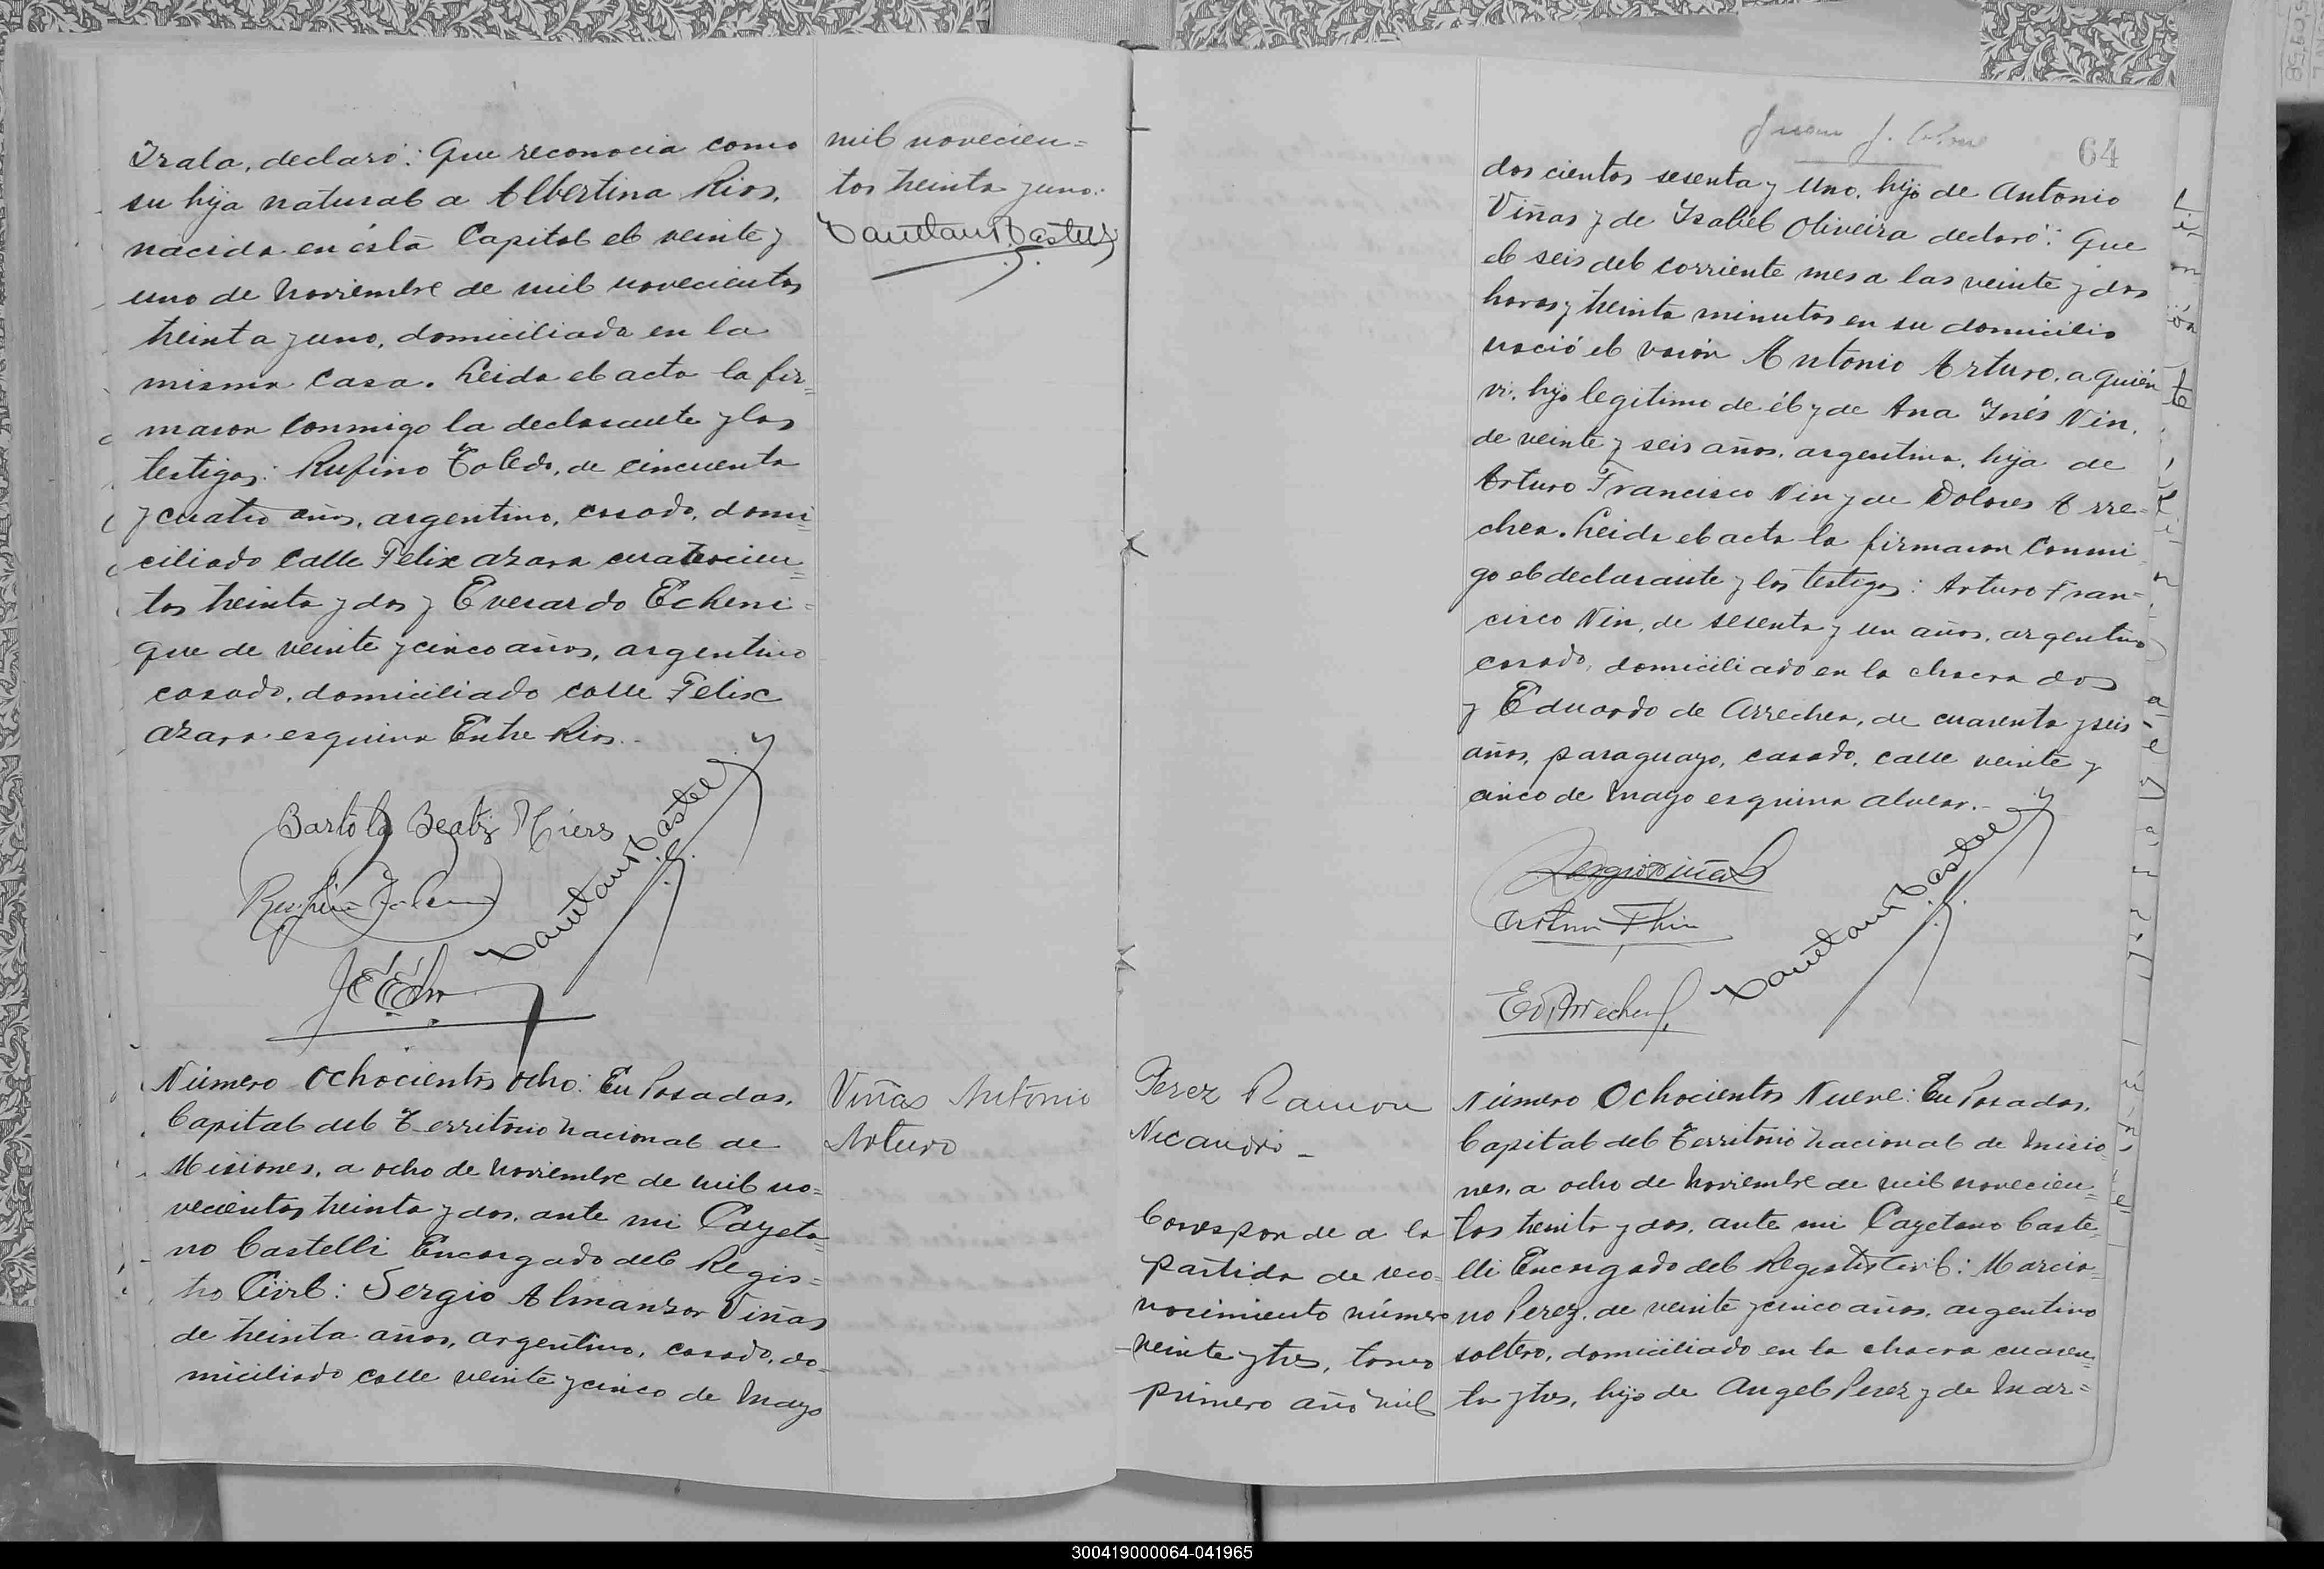 Irala, declaró: Que reconocia como
su hija natural a Albertina Rios,
nacida en ésta Capital el veinte y
uno de Noviembre de mil novecientos
treinta y uno, domiciliada en la
misma casa. Leida el acta la fir=
maron conmigo la declarante y los
testigos: Rufino Toledo, de cincuenta
y cuatro años, argentino, casado, domi=
ciliado calle Felix Azara cuatrocien=
tos treinta y dos y Everardo Echeni=
que de veinte y cinco años, argentino
casado, domiciliado calle Felix
Azara esquina Entre Rios.-
Bartola Beatriz Miers
Número Ochocientos ocho: En Posadas,
Capital del Territorio Nacional de
Misiones, a ocho de Noviembre de mil no=
vecientos treinta y dos, ante mi Cayeta=
no Castelli Encargado del Regis=
tro Civil: Sergio Almanzor Viñas
de treinta años, argentino, casado, do=
miciliado calle veinte y cinco de Mayo
mil novecien=
tos treinta y uno.
Viñas Antonio
Arturo
Perez Ramon
Nicandro -
Corresponde a la
partida de reco=
nocimiento número
veinte y tres, tomo
primero año mil
64
dos cientos sesenta y uno, hijo de Antonio
Viñas y de Isabel Oliveira declaró: Que
el seis del corriente mes a las veinte y dos
horas y treinta minutos en su domicilio
nació el varón Antonio Arturo, a quién
vi, hijo legitimo de él y de Ana Inés Nin,
de veinte y seis años, argentina, hija de
Arturo Francisco Nin y de Dolores Arre=
chea. Leida el acta la firmaron conmi
go el declarante y los testigos: Arturo Fran=
cisco Nin, de sesenta y un años, argentino
casado, domiciliado en la chacra dos
y Eduardo de Arrechea, de cuarenta y seis
años, paraguayo, casado, calle veinte y
cinco de Mayo esquina Alvear.-
Número Ochocientos Nueve: En Posadas,
Capital del Territorio Nacional de Misio=
nes, a ocho de Noviembre de mil novecien=
tos treinta y dos, ante mi Cayetano Caste=
lli Encargado del Registro Civil: Marcia=
no Perez, de veinte y cinco años, argentino
soltero, domiciliado en la chacra cuaren=
ta y tres, hijo de Angel Perez y de Mar=
300419000064-041965